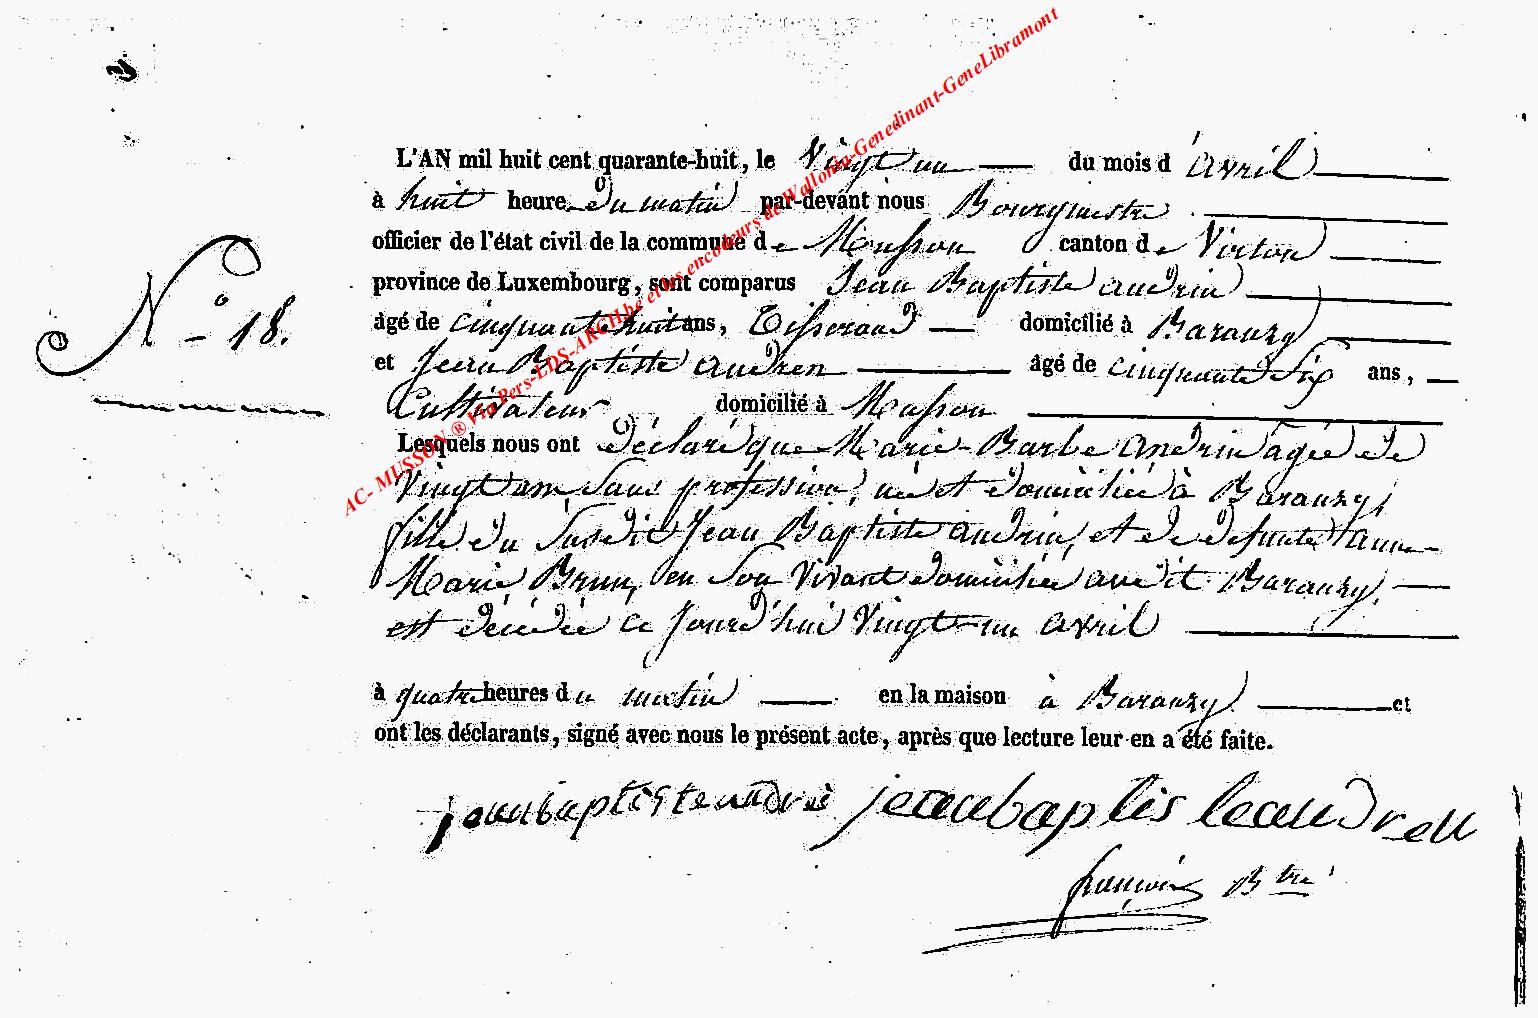 L'AN mil huit cent quarante-huit, le Vingt un du mois d'avril
à huit heure du matin par-devant nous Bourgmestre
officier de l'état civil de la commune de Musson canton de Virton
N° 18.
province de Luxembourg, sont comparus Jean Baptiste audrin
âgé de cinquante huit ans, Tisserand domicilié à Baranzy
et Jean Baptiste audren âgé de cinquante six ans,
Cultivateur domicilié à Musson
Lesquels nous ont déclaré que Marie-Barbe andrin agée de
Vingt ans, sans profession, née et domiciliée à Baranzy,
fille du susdit Jean Baptiste audrin, et de defunte anne
Marie Brun, en son vivant domiciliée audit Baranzy,
est décédée ce jourd'hui Vingt-un avril
à quatre heures du matin en la maison à Baranzy et
ont les déclarants, signé avec nous le présent acte, après que lecture leur en a été faite.
jeanbaptiste jeanbaptis
françois Btre
AC- MUSSON ® Via Pers-LDS-ARCH.be et les encodeurs de Wallonia-Genedinant-GeneLibramont